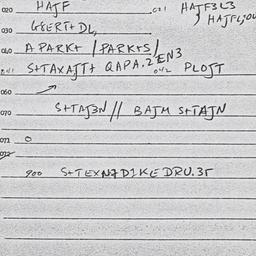 020 HAJF 021 HAJF3L3
HAJFL4OU
030 GEERT+DL,
040 A PARK+ /PARK+S/
041 S+TAXAJT+ QAPA.2EN3 042 PLOJT
060
070 S+TAJ3N // BAJM S+TAJN
071 0
072
900 S+TEXN7D1KE DRU.3T